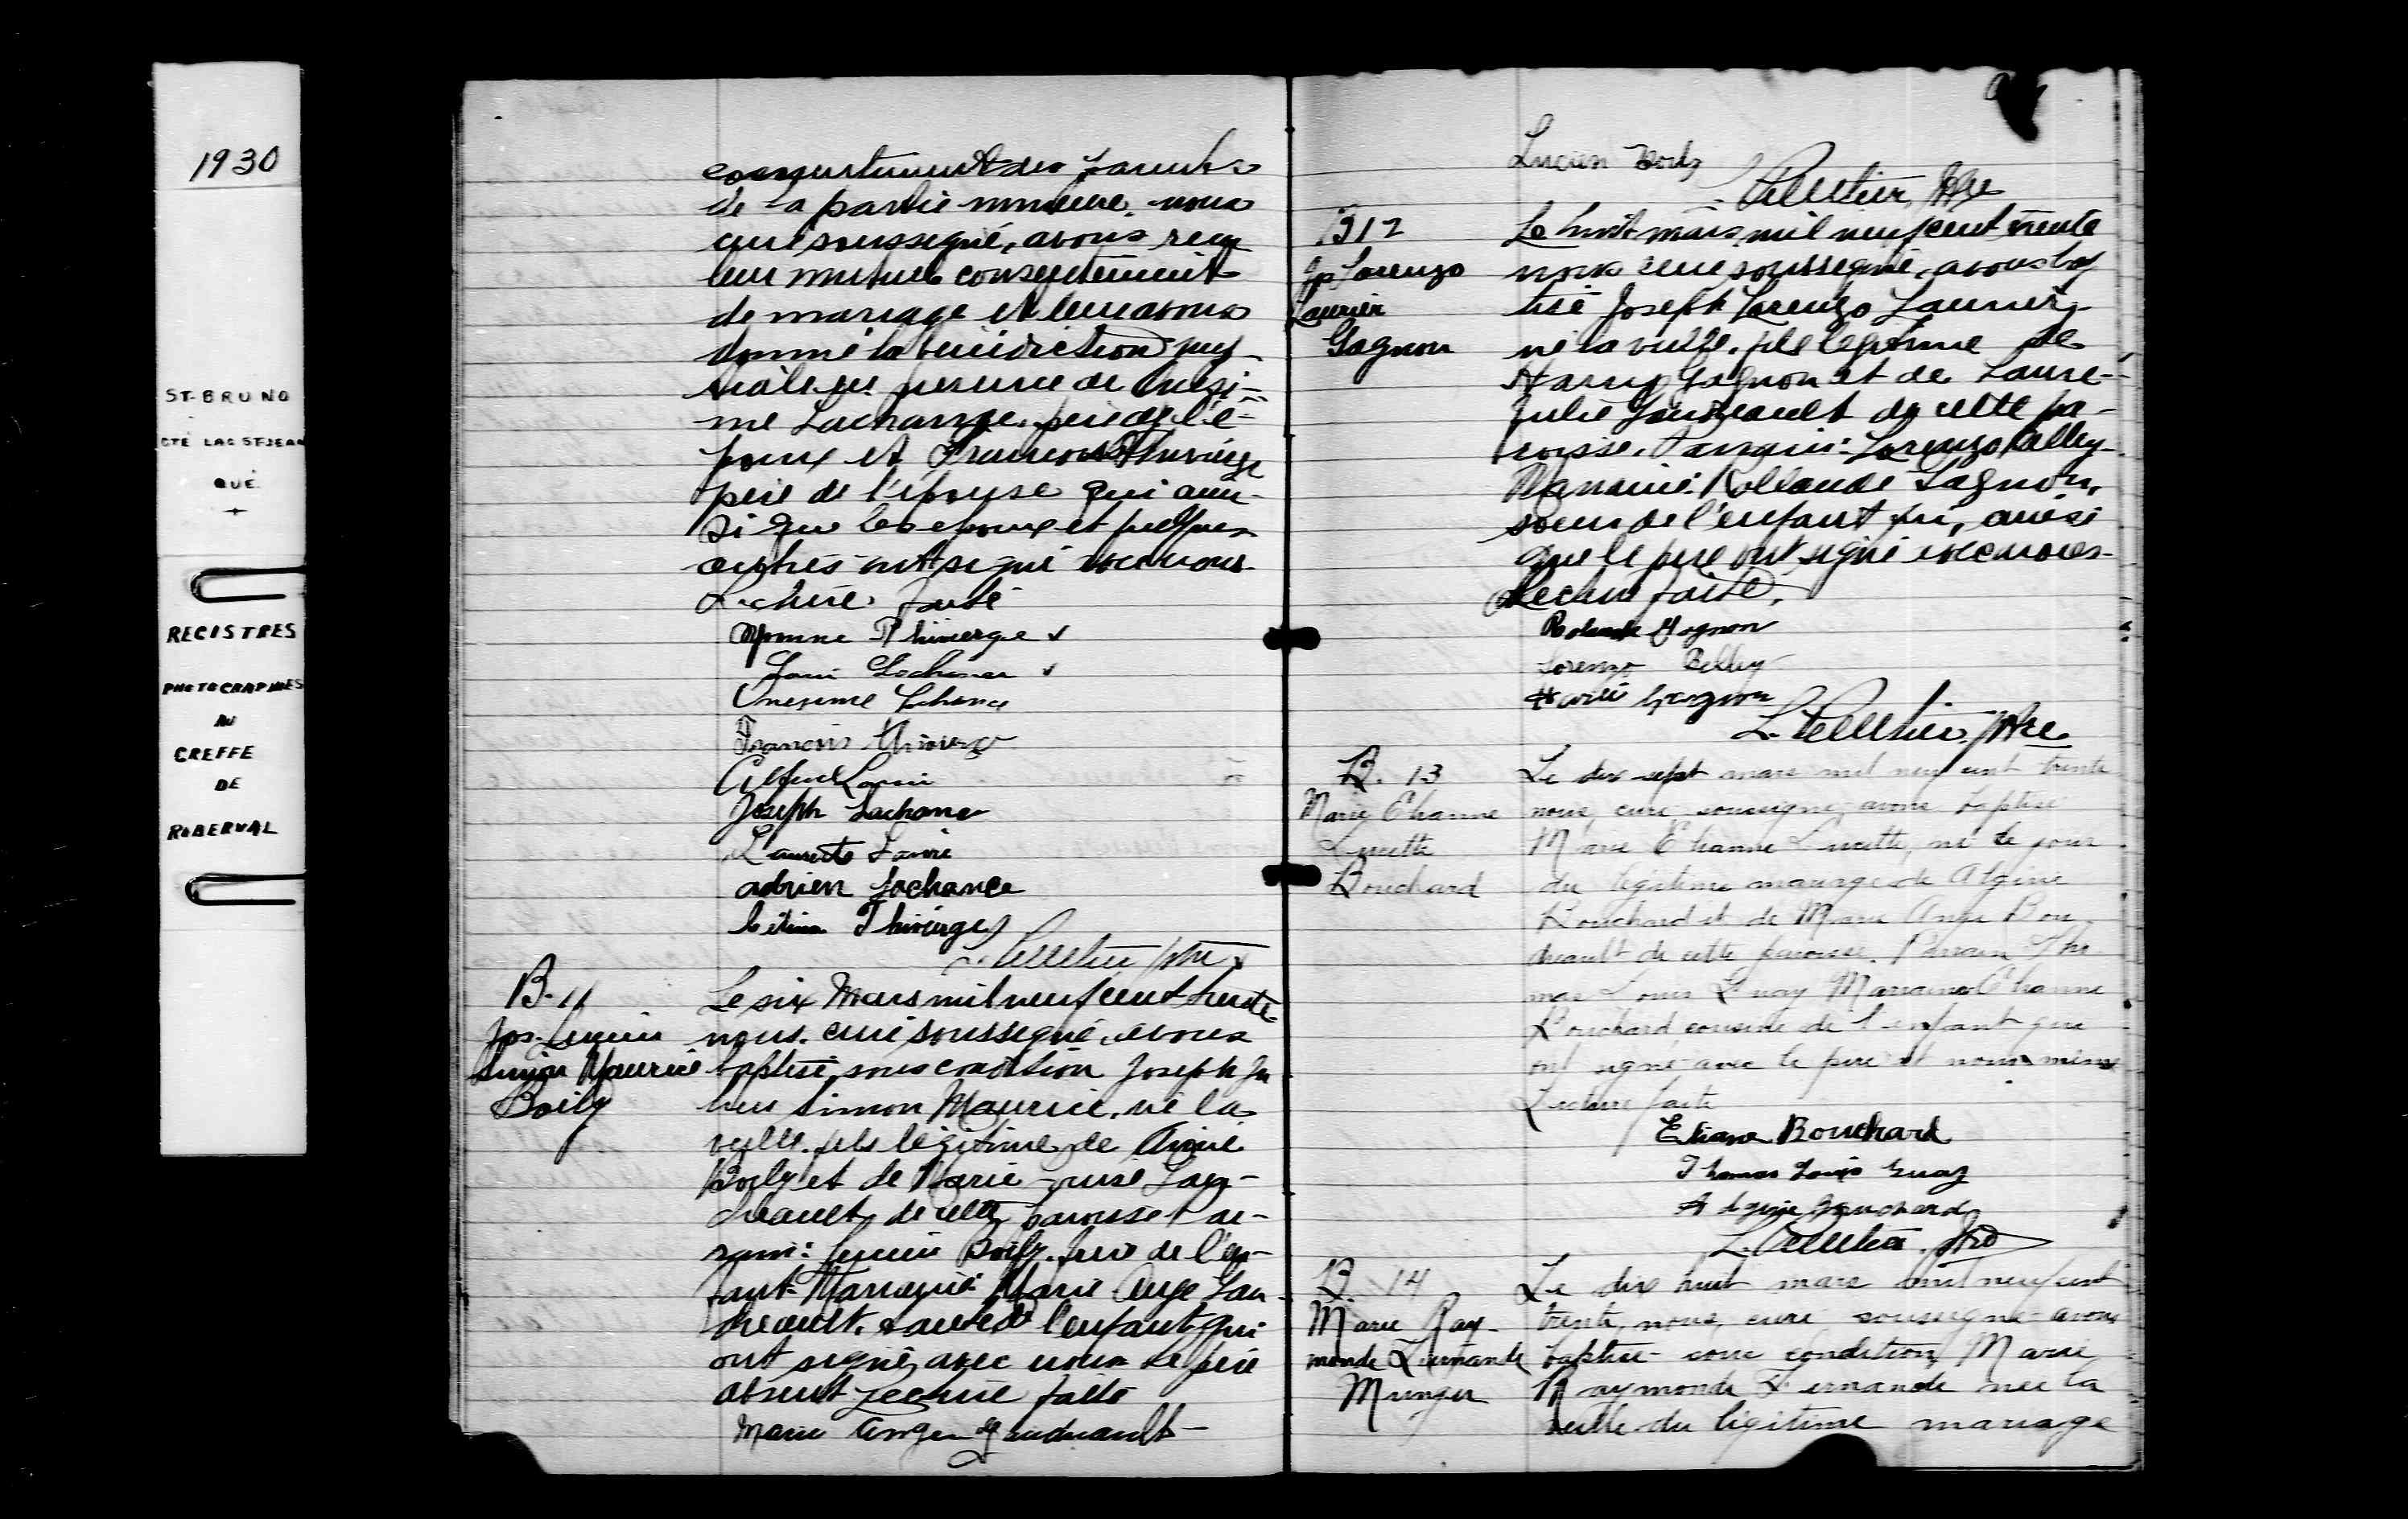 1930
ST-BRUNO
CTÉ LAC ST-JEAN
QUÉ.
REGISTRES
PHOTOGRAPHIÉS
AU
GREFFE
DE
ROBERVAL
consentement des parents
de la partie mineure, nous
curé soussigné, avons reçu
leur mutuel consentement
de mariage et leur avons
donné la bénédiction nup-
tiale en présence de Onési-
me Lachance, père de l'é-
poux et François Thivierge
père de l'épouse qui ain-
si que les époux et quelques
autres ont signé avec nous
Lecture faite
Thivierge
Lachance
Onesime Lachance
Francois Thivierge
Alfred
Joseph Lachance
Laurette
adrien Lachance
Thivierge
L. Pelletier ptre
B. 11
Jos. Lucien
Simon Maurice
Boily
Le six Mars mil neuf cent trente
nous, curé soussigné, avons
baptisé sous condition Joseph Lu
cien Simon Maurice, né la
veille, fils légitime de Aimé
Boily et de Marie-Louise Gau-
dreault de cette paroisse Par-
rain: Lucien Boily, frère de l'en-
fant Marraine Marie Ange Gau-
dreault, de l'enfant qui
ont signé avec nous le père
absent Lecture faite
Marie Ange Gaudreault
Lucien Boily
L. Pelletier, Ptre
B 12
Jos Lorenzo
Laurier
Gagnon
Le huit mars mil neuf cent trente
nous curé soussigné, avons bap
tisé Joseph Lorenzo Laurier,
né la veille, fils légitime de
Harry Gagnon et de Laure-
Julie Gaudreault de cette pa-
roisse. Parrain: Lorenzo Belley
Marraine: Rollande Gagnon,
soeur de l'enfant qui, ainsi
que le père ont signé avec nous
Lecture faite.
Rolande Gagnon
Lorenzo Belley
Gagnon
L. Pelletier, Ptre
B. 13
Marie Elianne
Lucette
Bouchard
Le dix-sept mars mil neuf cent trente
nous, curé soussigné, avons baptisé
Marie Elianne Lucette, né le jour
du légitime mariage de Algine
Bouchard et de Marie Ange Bou
dreault de cette paroisse. Parrain Tho
mas Louis Guay Marraine Elianne
Bouchard, cousine de l'enfant qui
ont signé avec le père et nous même
Lecture faite
Eliane Bouchard
Thomas Louis Guay
Bouchard
L. Pelletier. Ptre
B. 14
Marie Ray-
monde Fernande
Munger
Le dix huit mars mil neuf cent
trente, nous, curé soussigné avons
baptisé sous condition, Marie
Raymonde Fernande née la
veille du légitime mariage